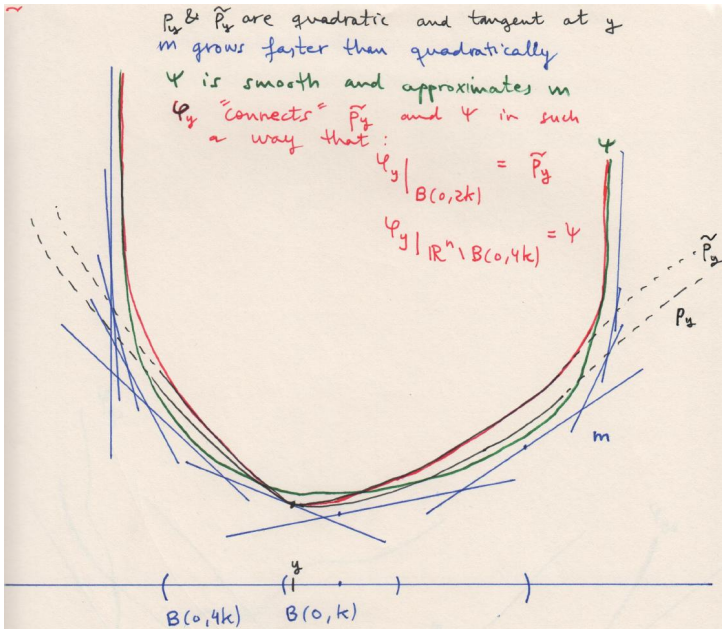 Py & P̃y are quadratic and tangent at y
m grows faster than quadratically
Ψ is smooth and approximates m
φy "connects" P̃y and Ψ in such
a way that :
φy|B(0,2k) = P̃y
Ψ
φy|ℝⁿ\B(0,4k) = Ψ
P̃y
Py
m
y
B(0,4k) B(0,k)